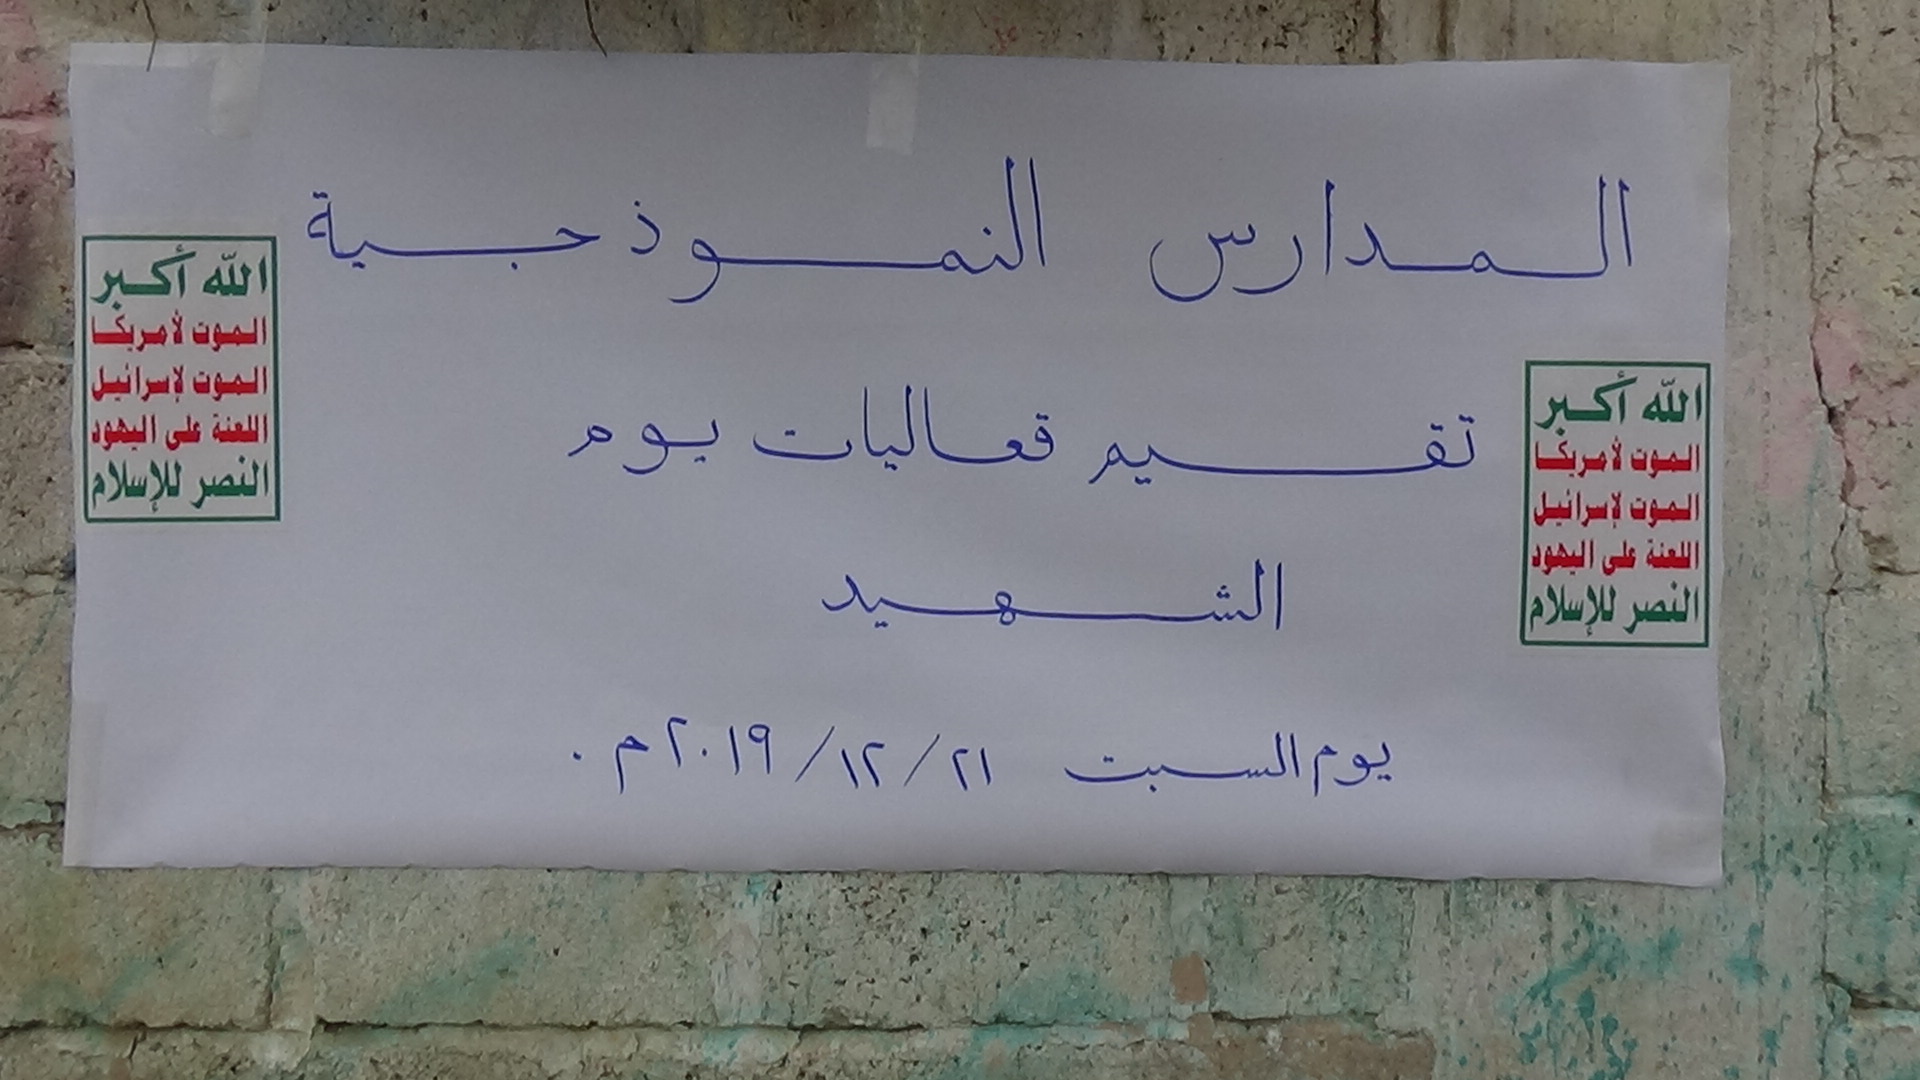 المدارس النموذجية
تقيم فعاليات يوم
الشهيد
يوم السبت ٢١/١٢/٢٠١٩م.
الله أكبر
الموت لأمريكا
الموت لإسرائيل
اللعنة على اليهود
النصر للإسلام
الله أكبر
الموت لأمريكا
الموت لإسرائيل
اللعنة على اليهود
النصر للإسلام